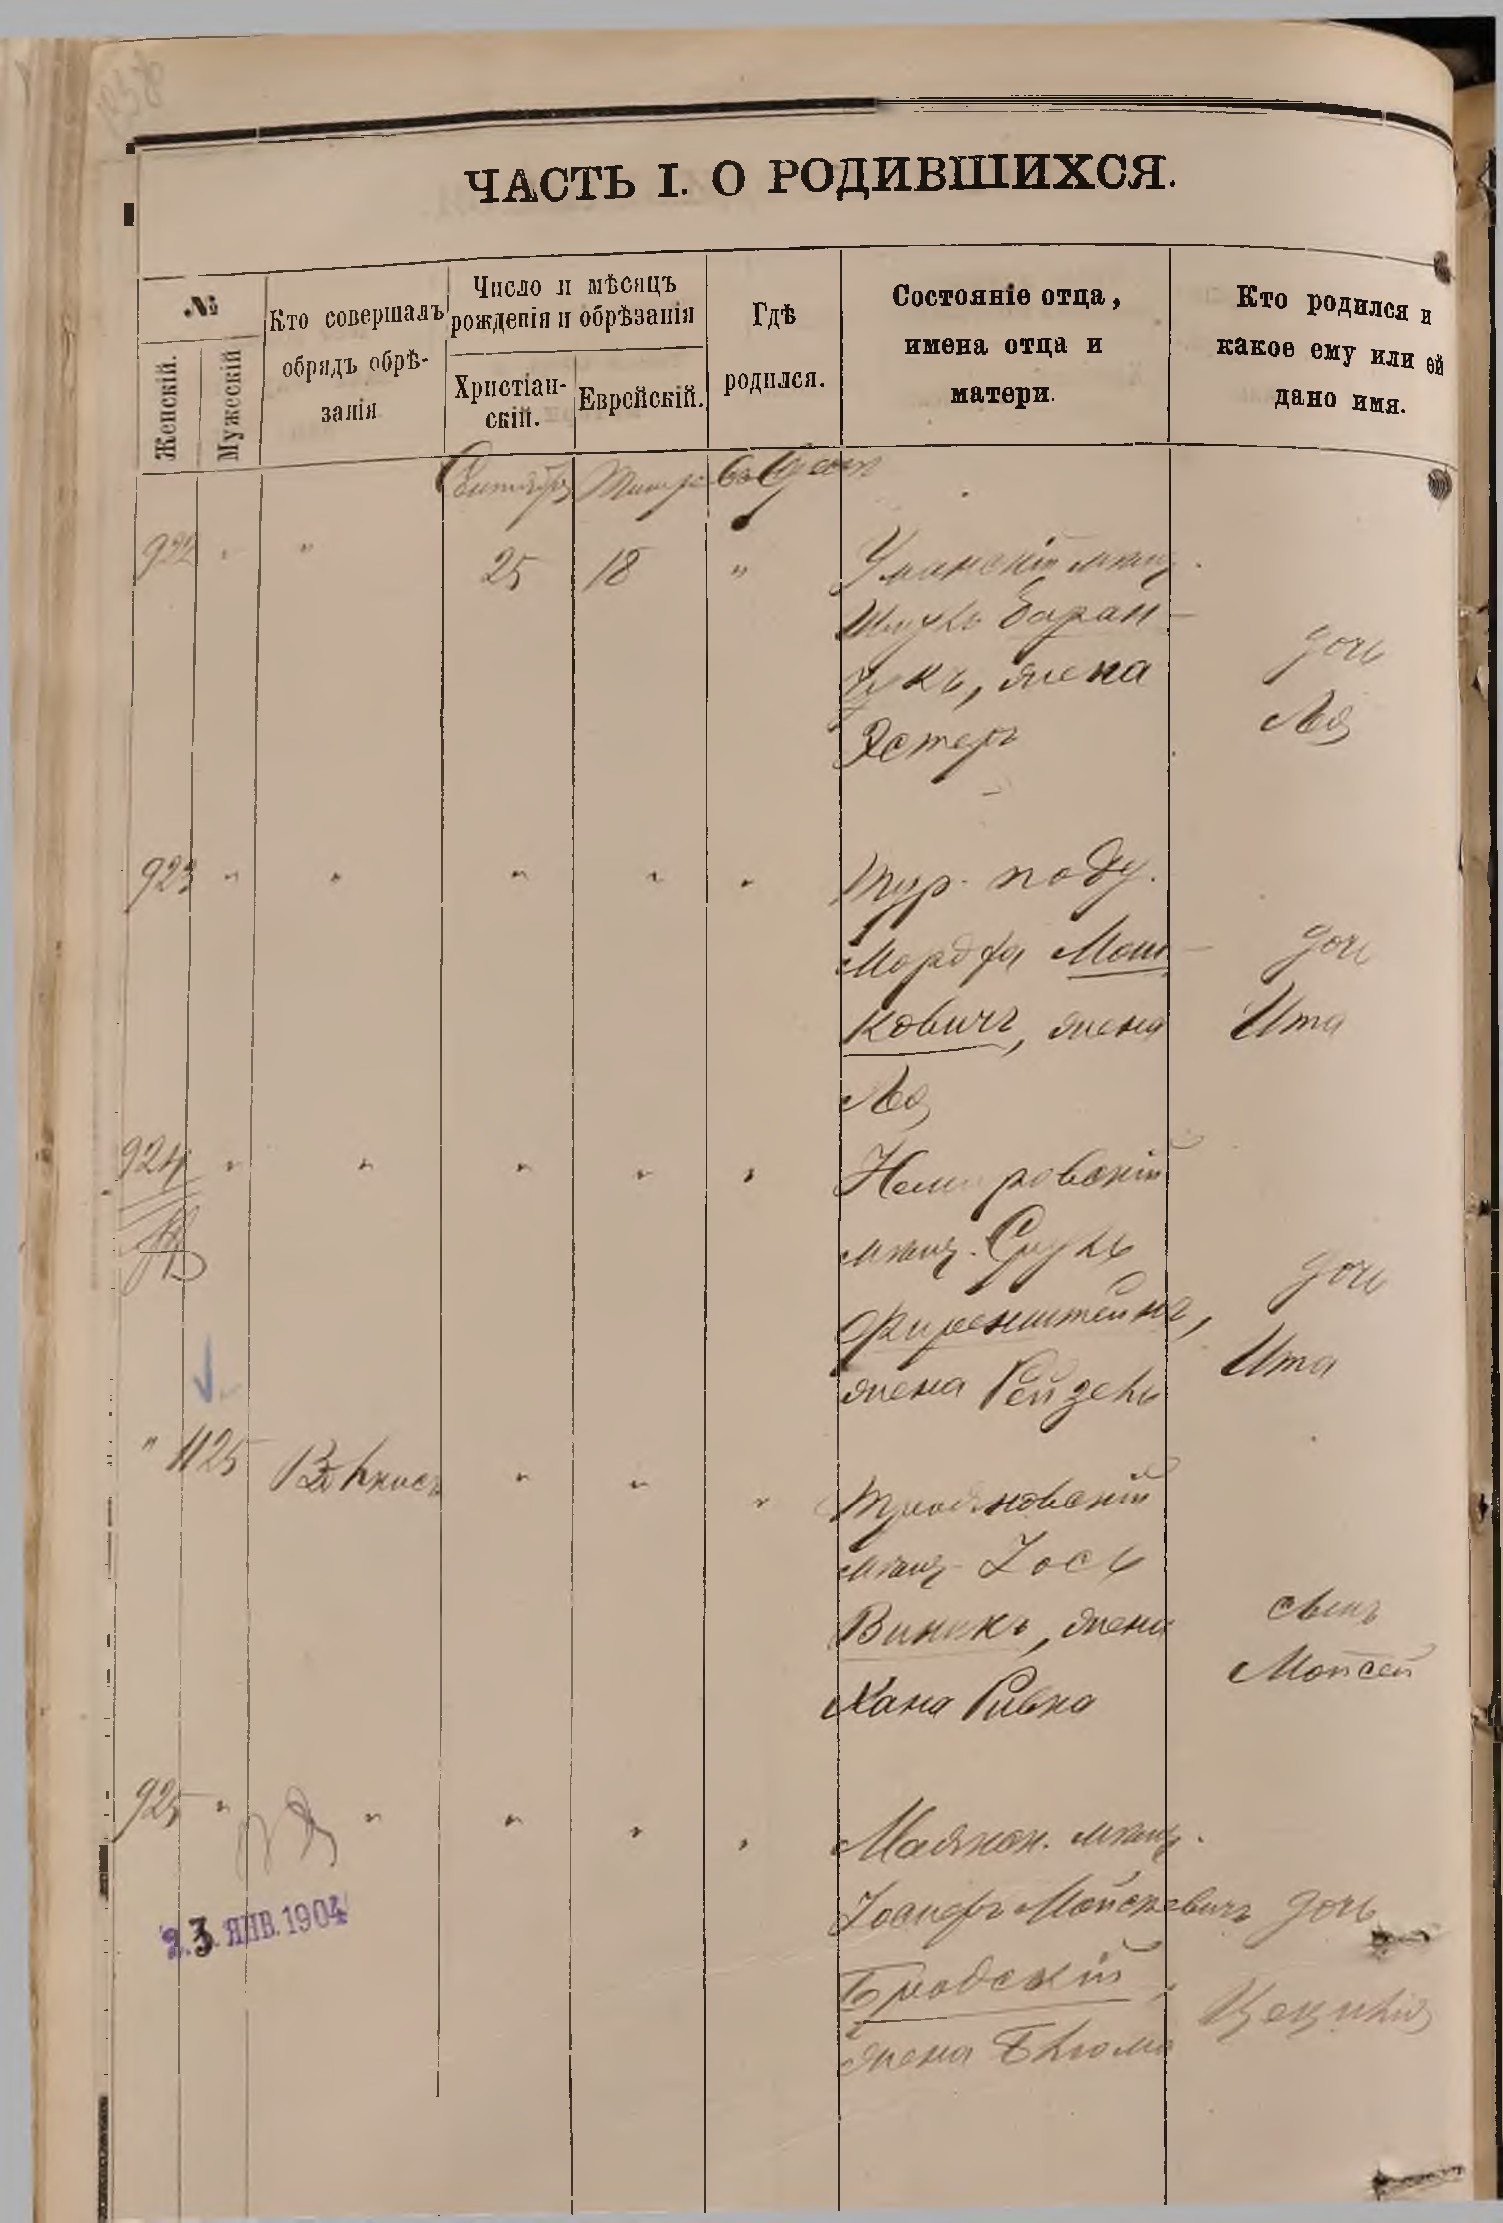 ЧАСТЬ I. О РОДИВШИХСЯ.
№
Женскій.
Мужескій
Кто совершалъ
обрядъ обрѣ-
занія
Число и мѣсяцъ
рожденія и обрѣзанія
Христіан-
скій.
Еврейскій.
Гдѣ
родился.
Состояніе отца,
имена отца и
матери.
Кто родился и
какое ему или ей
дано имя.
Сентября
922 " " 25 18 "
Уманскій мѣщ.
Шмуль Баран-
жена
Эстеръ
дочь
Лея
923 " " " " "
Тур. подд.
Мордха Мош-
ковичъ, жена
Лея
дочь
Ита
924 " " " " "
Немировскій
мѣщ. Сруль
Фиренштейнъ,
жена Рейзель
дочь
Ита
" 1125 " " "
мѣщ. Іось
жена
Хана Ривка
сынъ
Мойсей
925 " " " " "
Маяков. мѣщ.
Іосифъ Мойсеевичъ
Бродскій,
жена Блюма
дочь
Цецилія
23 ЯНВ. 1904